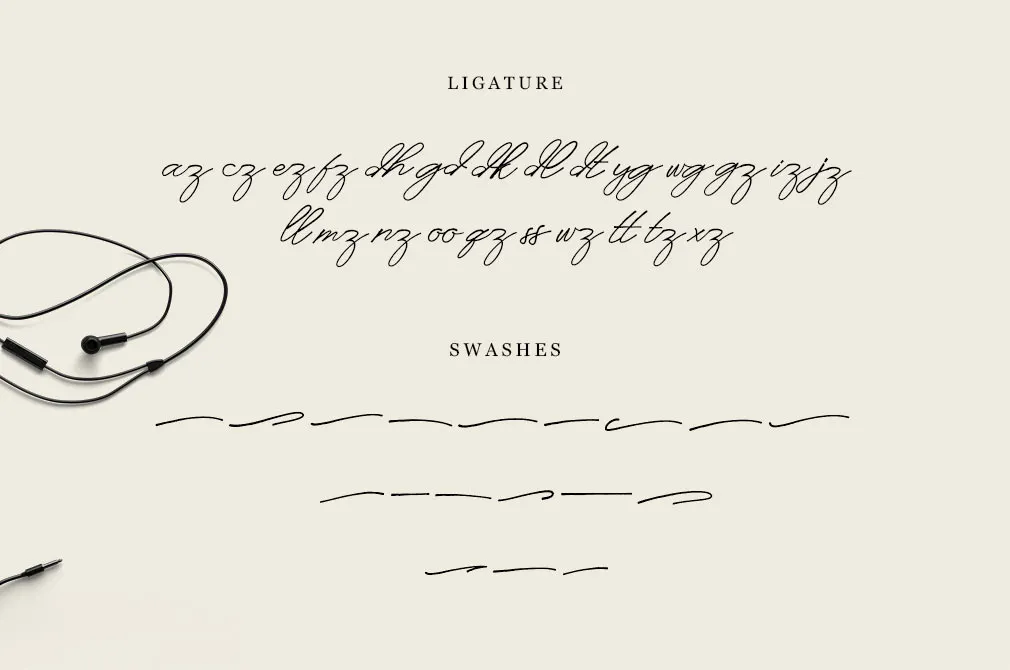 LIGATURE
az cz ez fz dh gd dk dl dt yg wg gz iz jz
ll mz nz oo qz ss wz tt tz xz
SWASHES